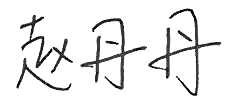 赵丹丹